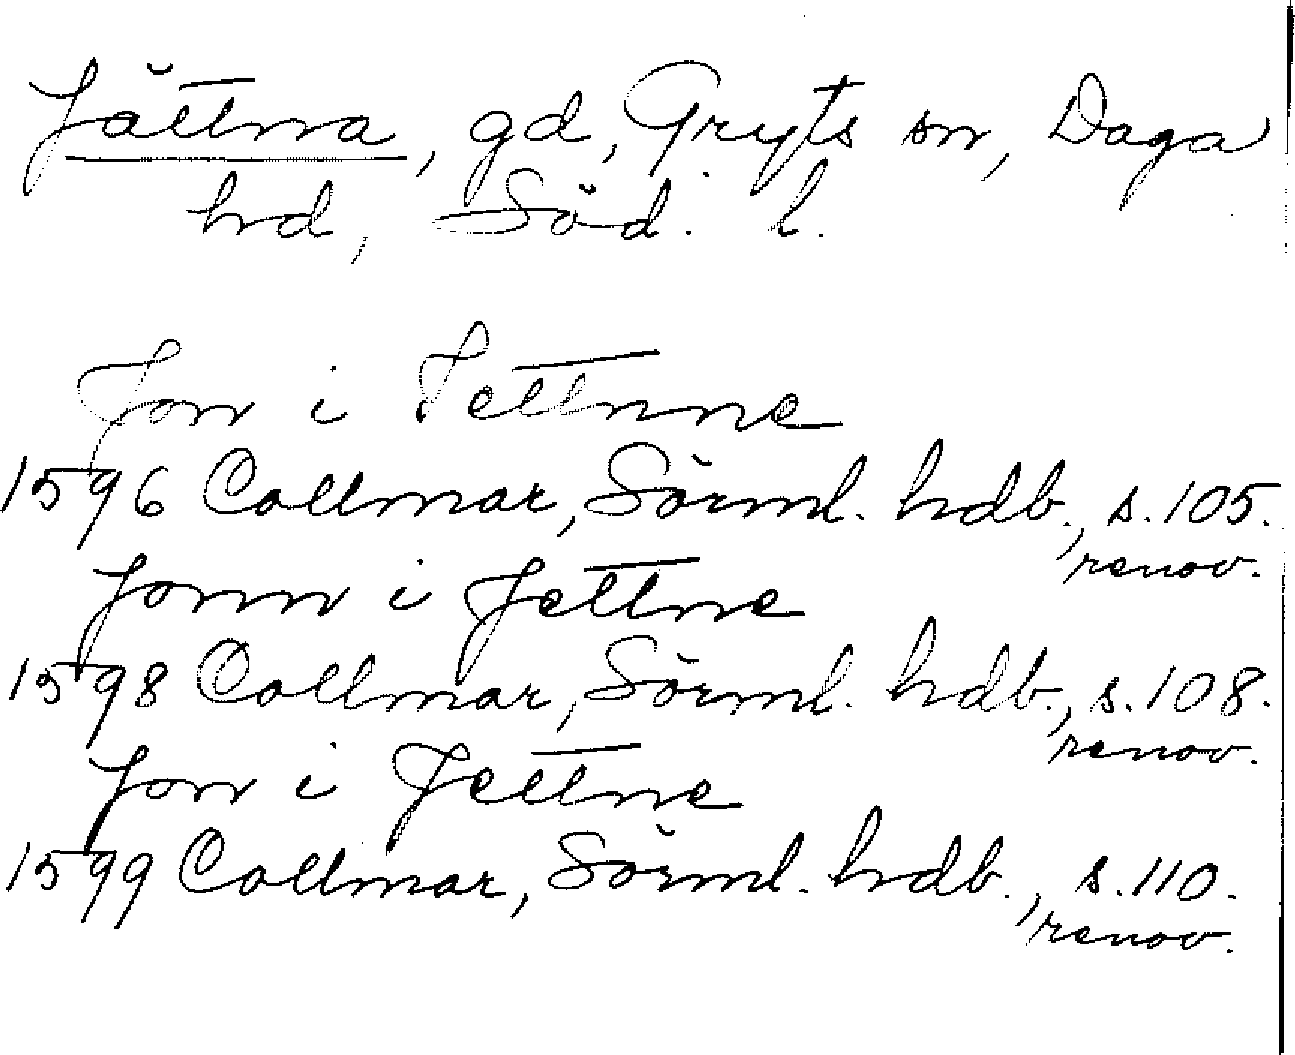 Jättna, gd, Gryts sn, Daga
hd, Söd. l.
Jon i Iettnne
1596 Collmar, Sörml. hdb., s. 105.
renov.
Jonn i Jettne
1598 Collmar, Sörml. hdb., s. 108.
renov.
Jon i Jettne
1599 Collmar, Sörml. hdb., s. 110.
renov.